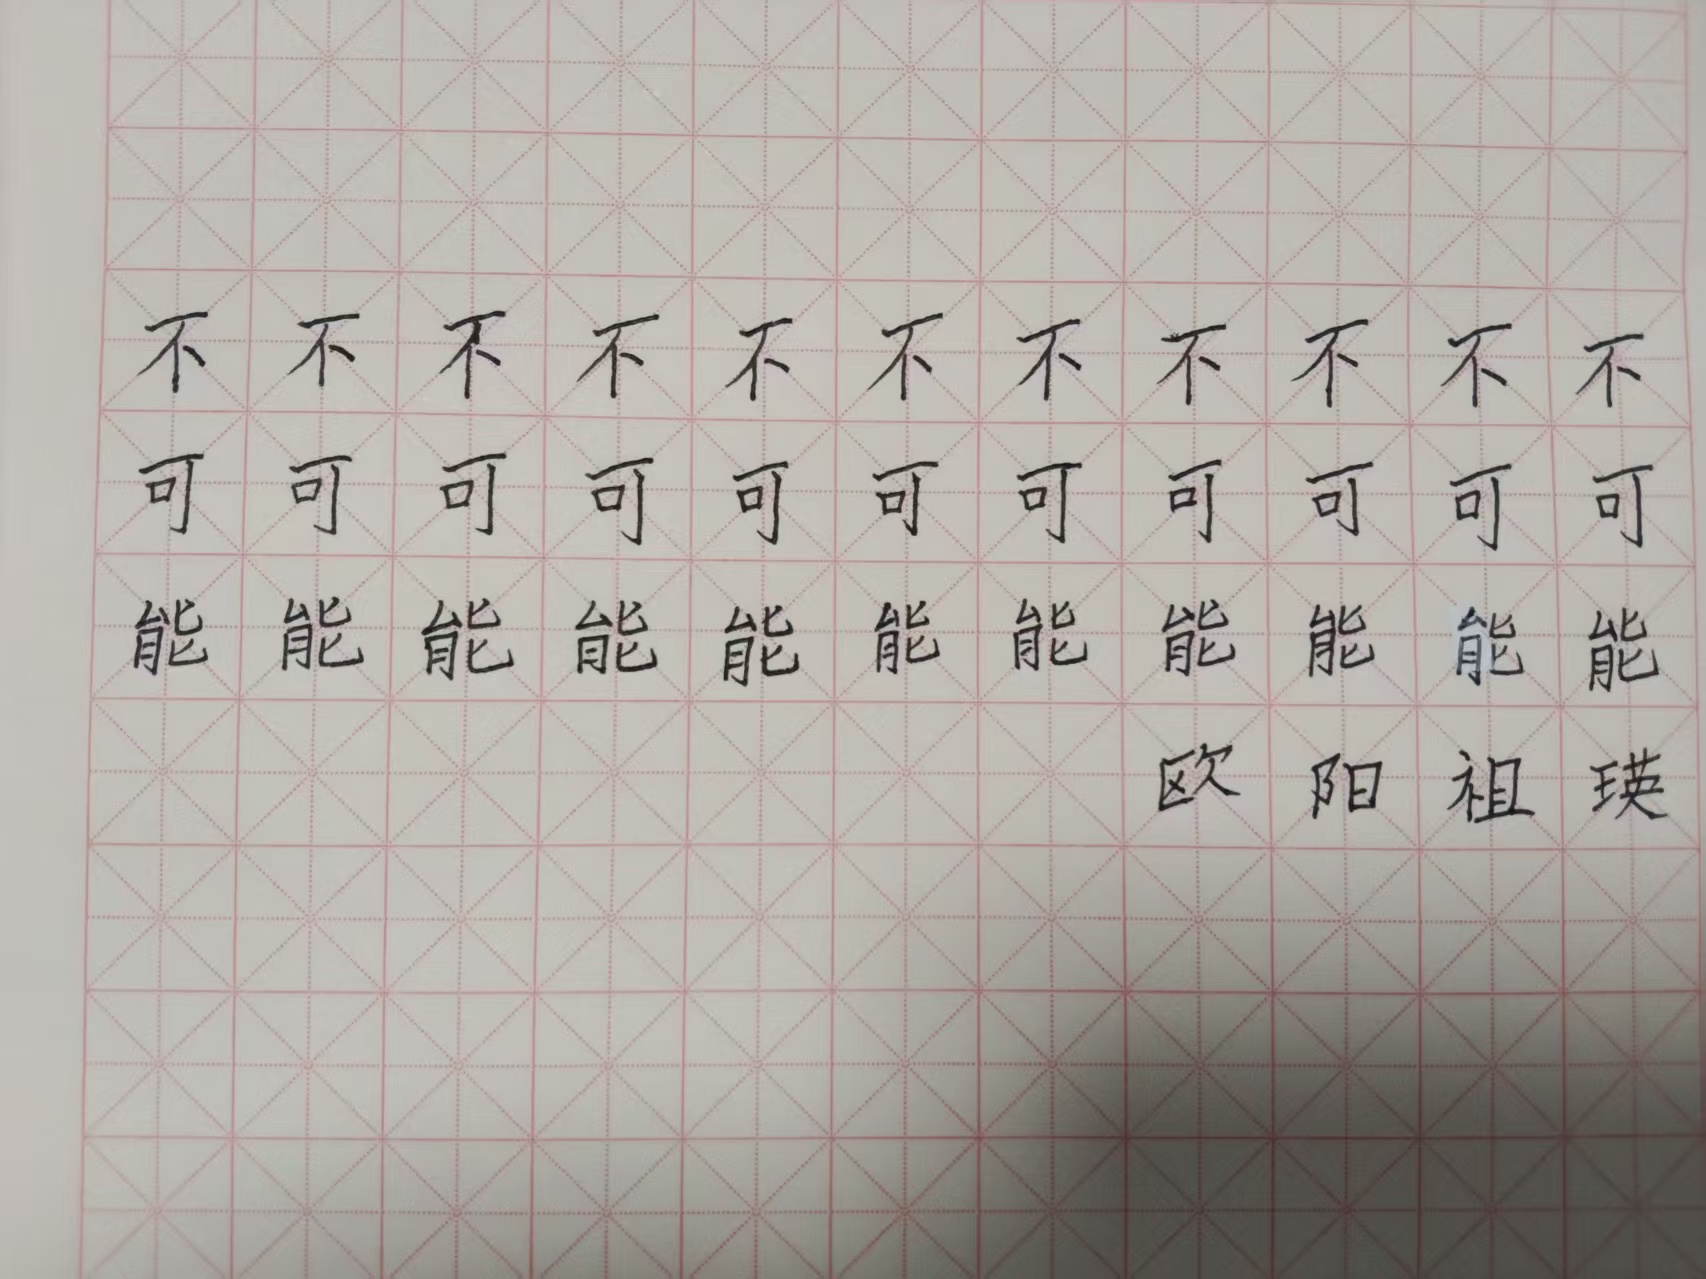 不不不不不不不不不不不
可可可可可可可可可可可
能能能能能能能能能能能
欧阳祖瑛